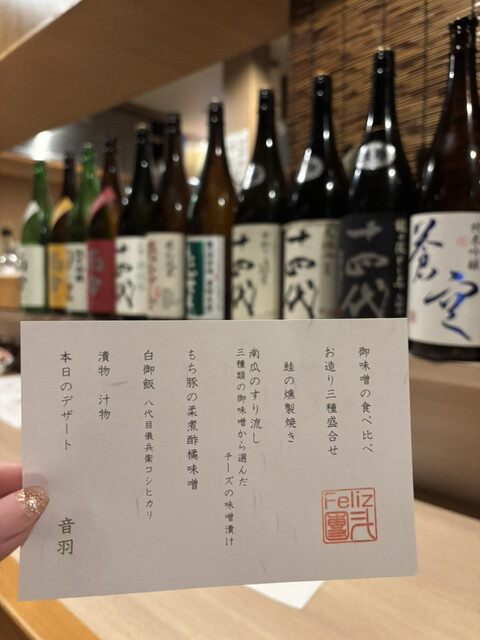 御味噌の食べ比べ
お造り三種盛合せ
鮭の燻製焼き
南瓜のすり流し
三種類の御味噌から選んだ
チーズの味噌漬け
もち豚の柔煮酢橘味噌
白御飯 八代目儀兵衛コシヒカリ
漬物 汁物
本日のデザート
音羽
Feliz
十四代
十四代
十四代
純米吟醸
蒼空